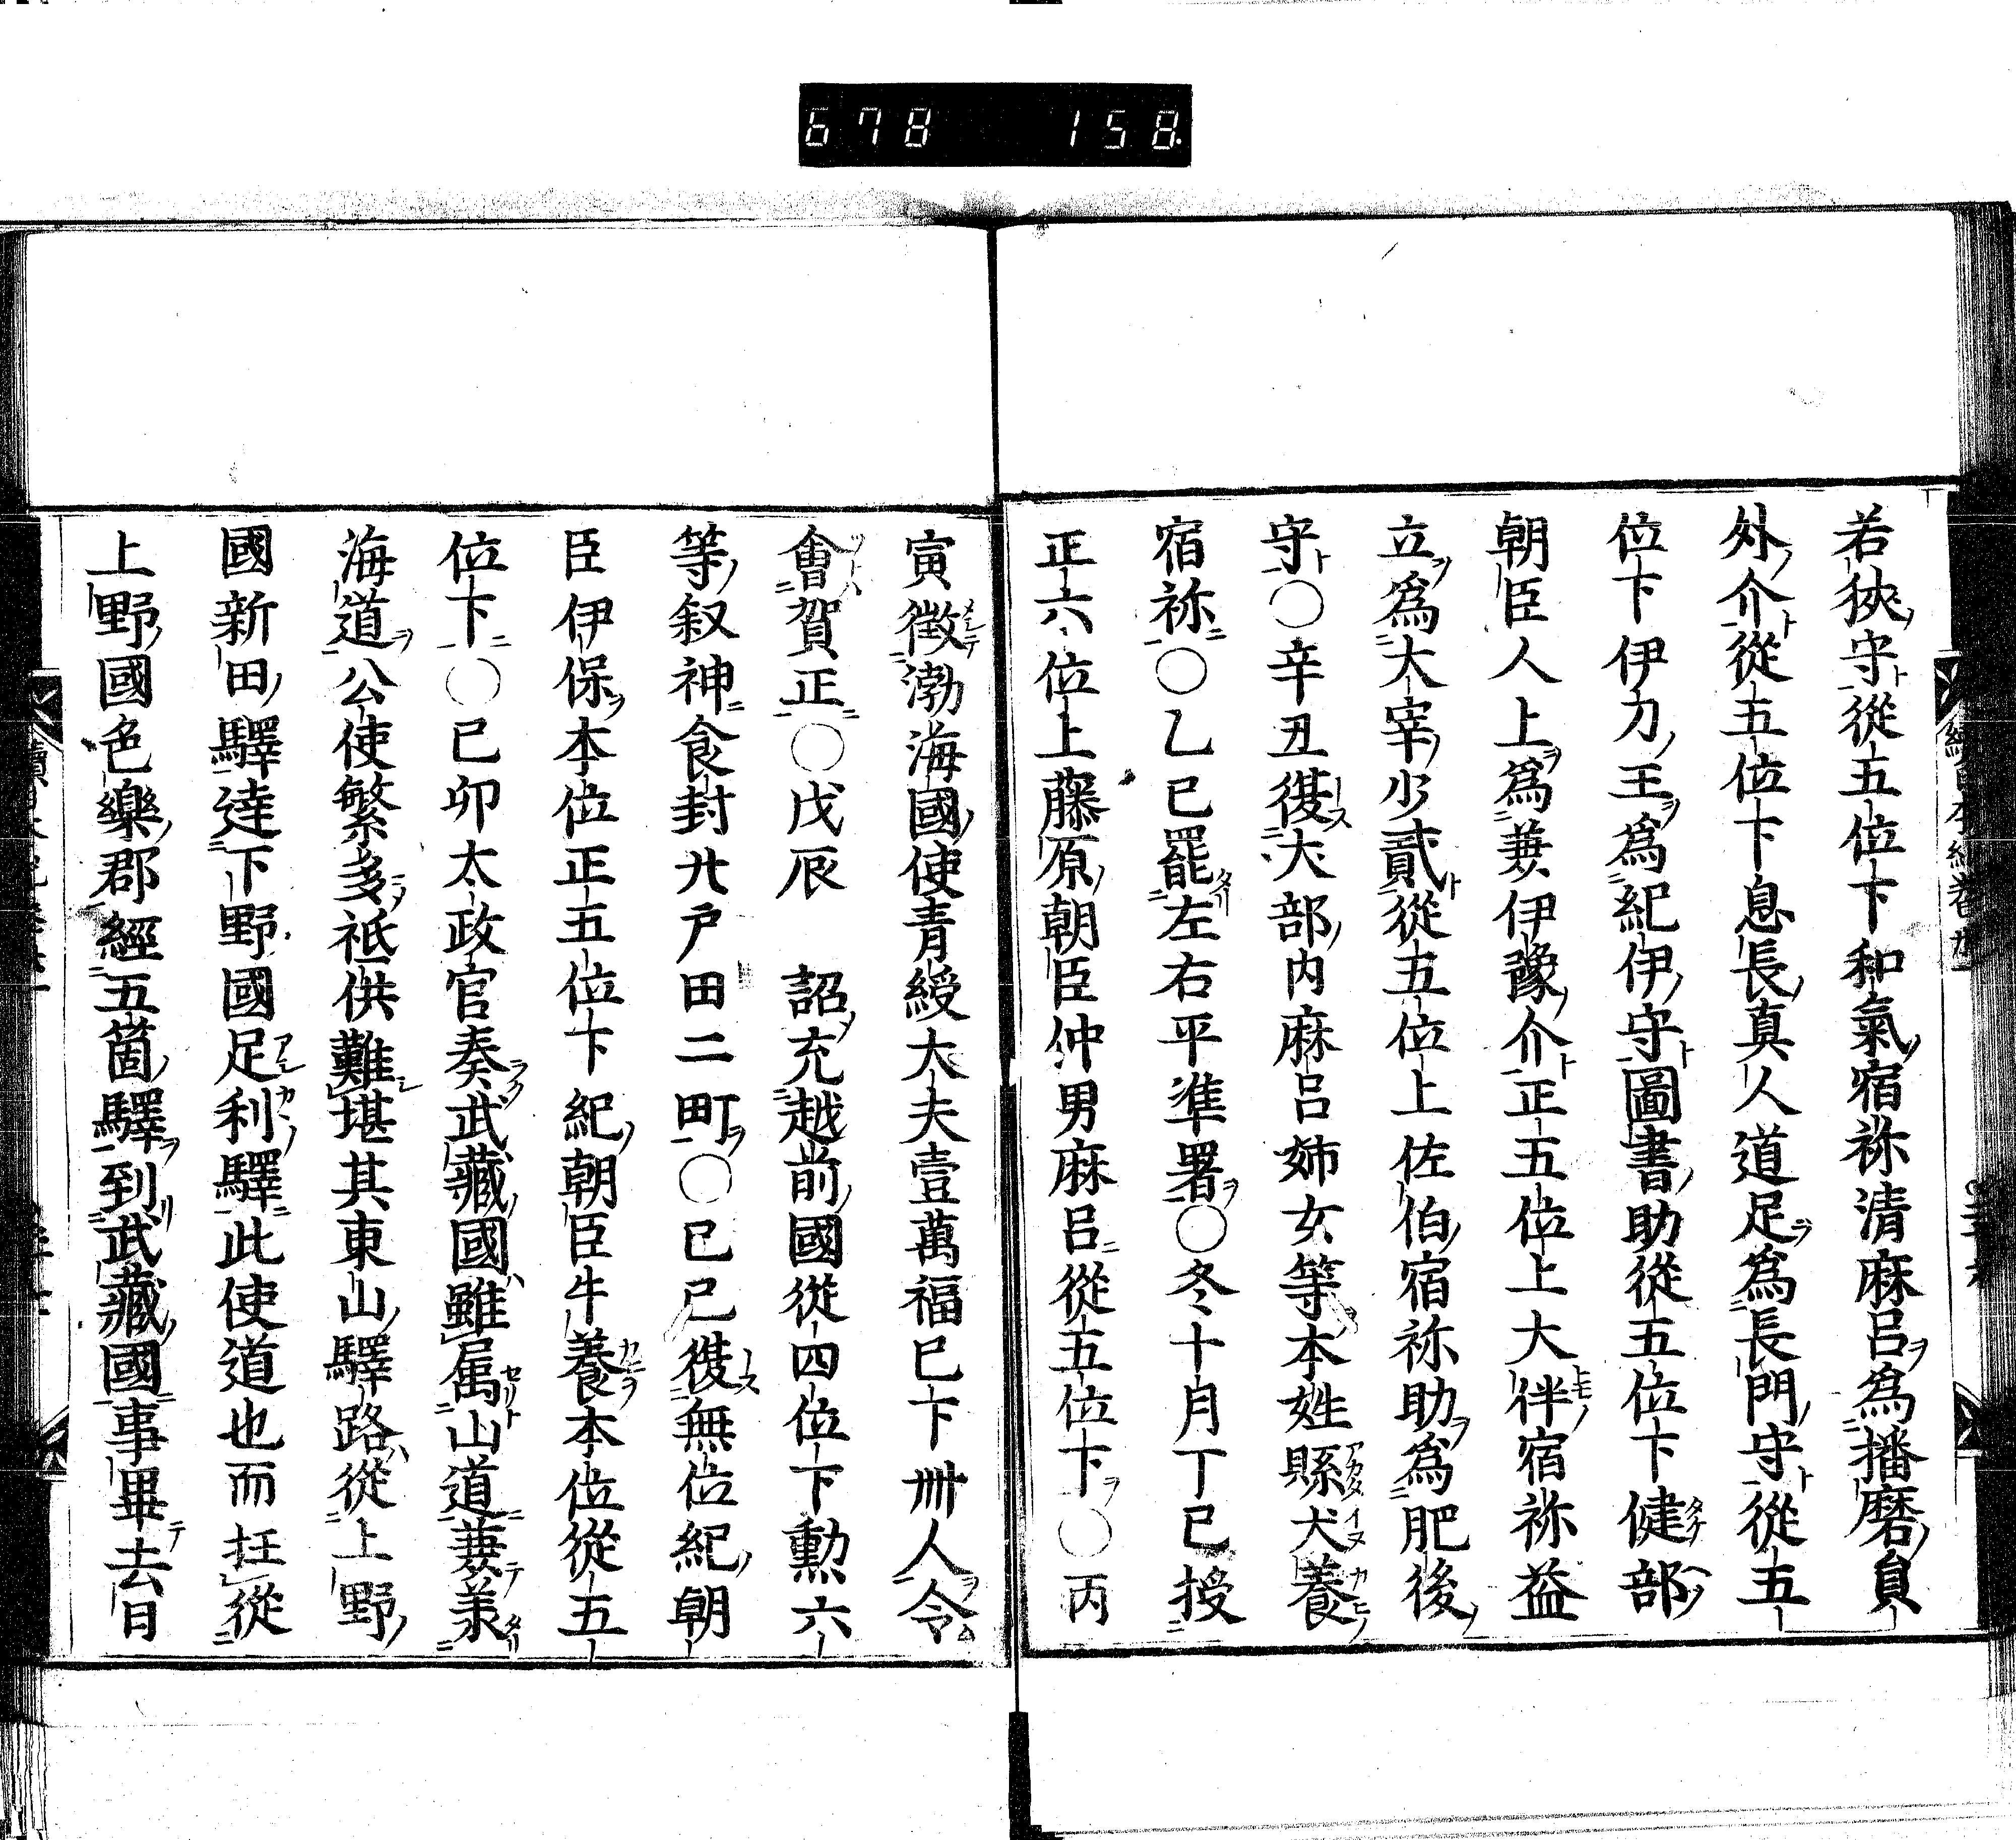 678 158
若狹守從五位下和氣宿祢清麻呂爲播磨員
外介從五位下息長真人道足爲長門守從五
位下伊刀王爲紀伊守圖書助從五位下健部
朝臣人上爲兼伊豫介正五位上大伴宿祢益
立爲大宰少貳從五位上佐伯宿祢助爲肥後
守○辛丑復犬部内麻呂姉女等本姓縣犬養
宿祢○乙巳罷左右平準署○冬十月丁巳授
正六位上藤原朝臣仲男麻呂從五位下○丙
寅徴渤海國使青綬大夫壹萬福已下卌人令
會賀正○戊辰 詔充越前國從四位下勲六
等叙神食封廿戸田二町○己巳復無位紀朝
臣伊保本位正五位下紀朝臣牛養本位從五
位下○己卯太政官奏武藏國雖属山道兼承
海道公使繁多祗供難堪其東山驛路從上野
國新田驛達下野國足利驛此使道也而枉從
上野國色樂郡經五箇驛到武藏國事畢去日